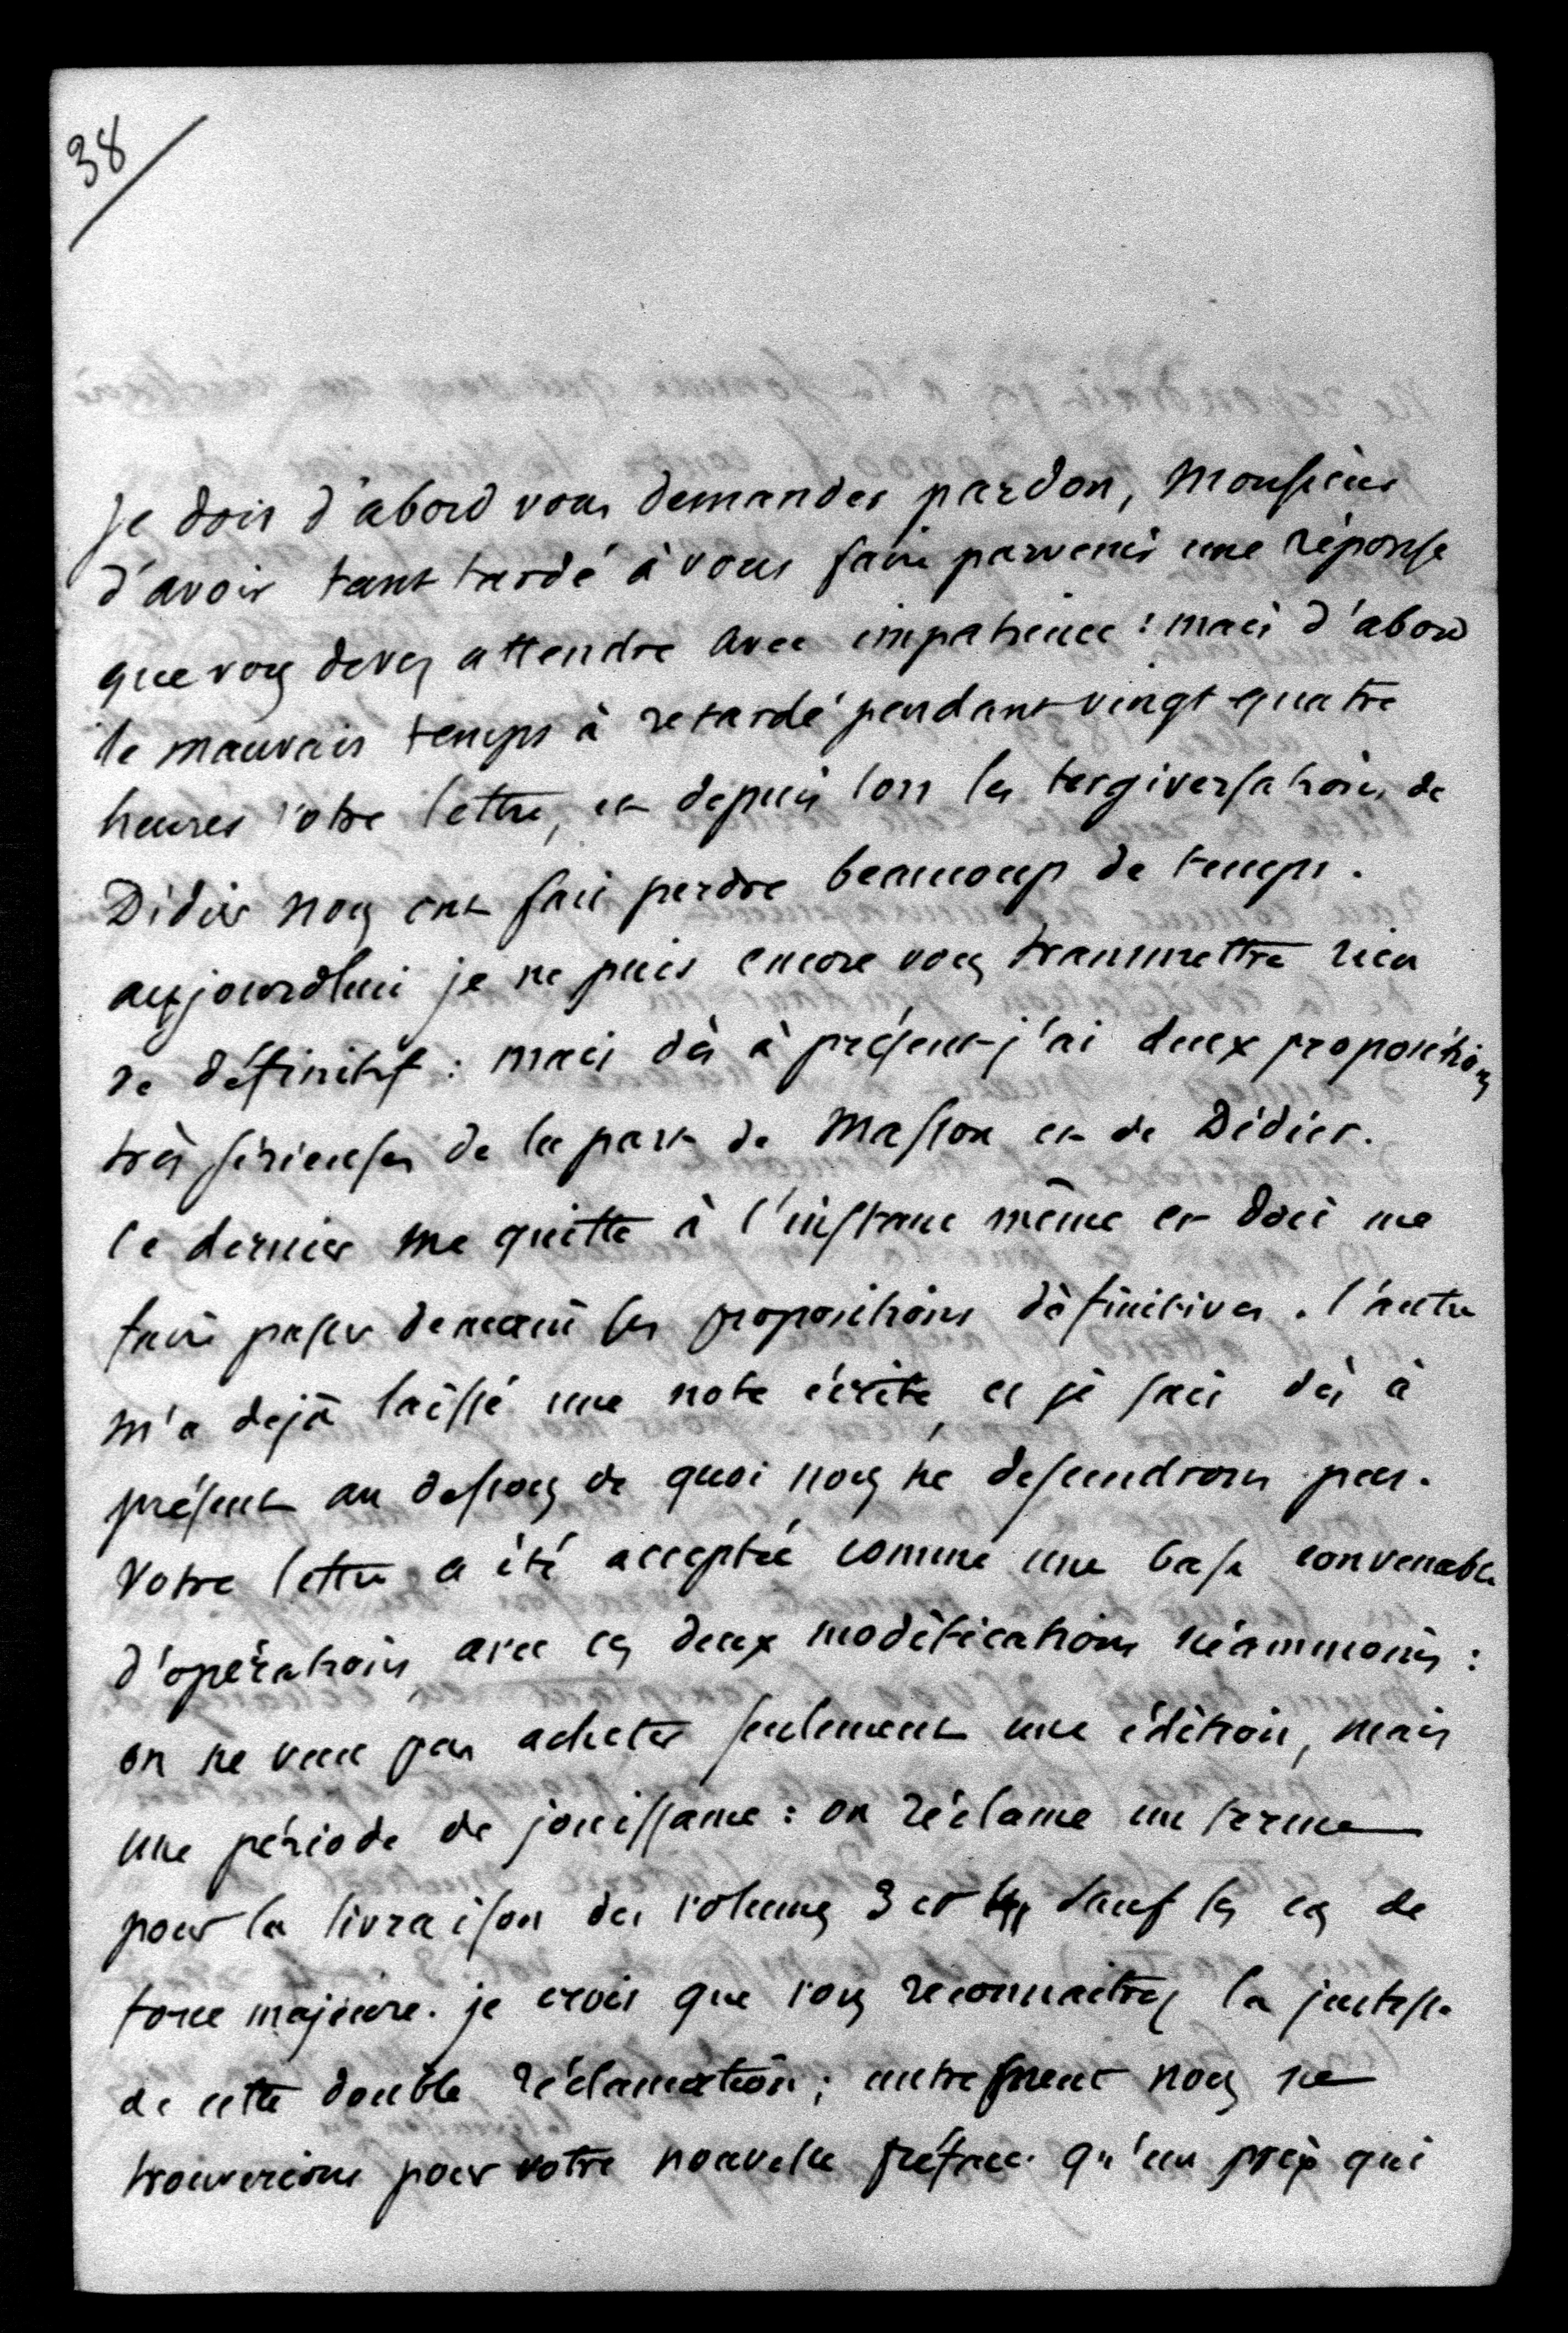 38
Je dois d'abord vous demander pardon, Monsieur
d'avoir tant tardé à vous faire parvenir une réponse
que vous devez attendre avec impatience : mais d'abord
le mauvais temps à retardé pendant vingt quatre
heures votre lettre, et depuis lors les tergiversations de
Didier nous ont fait perdre beaucoup de temps.
aujourdhui je ne puis encore vous transmettre rien
de définitif : mais dès à présent j'ai deux propositions
très sérieuses de la part de Masson et de Didier.
Ce dernier me quitte à l'instant même et doit me
faire passer demain ses propositions définitives. l'autre
m'a dejà laissé une note écrite, et je sais dès à
présent au dessous de quoi nous ne descendrons pas.
Votre lettre a été acceptée comme une base convenable
d'opérations, avec ces deux modifications néammoins :
on ne veut pas acheter seulement une édition, mais
une période de jouissance : on réclame un terme
pour la livraison des volumes 3 et 4, sauf les cas de
force majeure. je crois que vous reconnaitrez la justesse
de cette double réclamation ; autrement nous ne
trouverions pour votre nouvelle préface qu'un prix qui